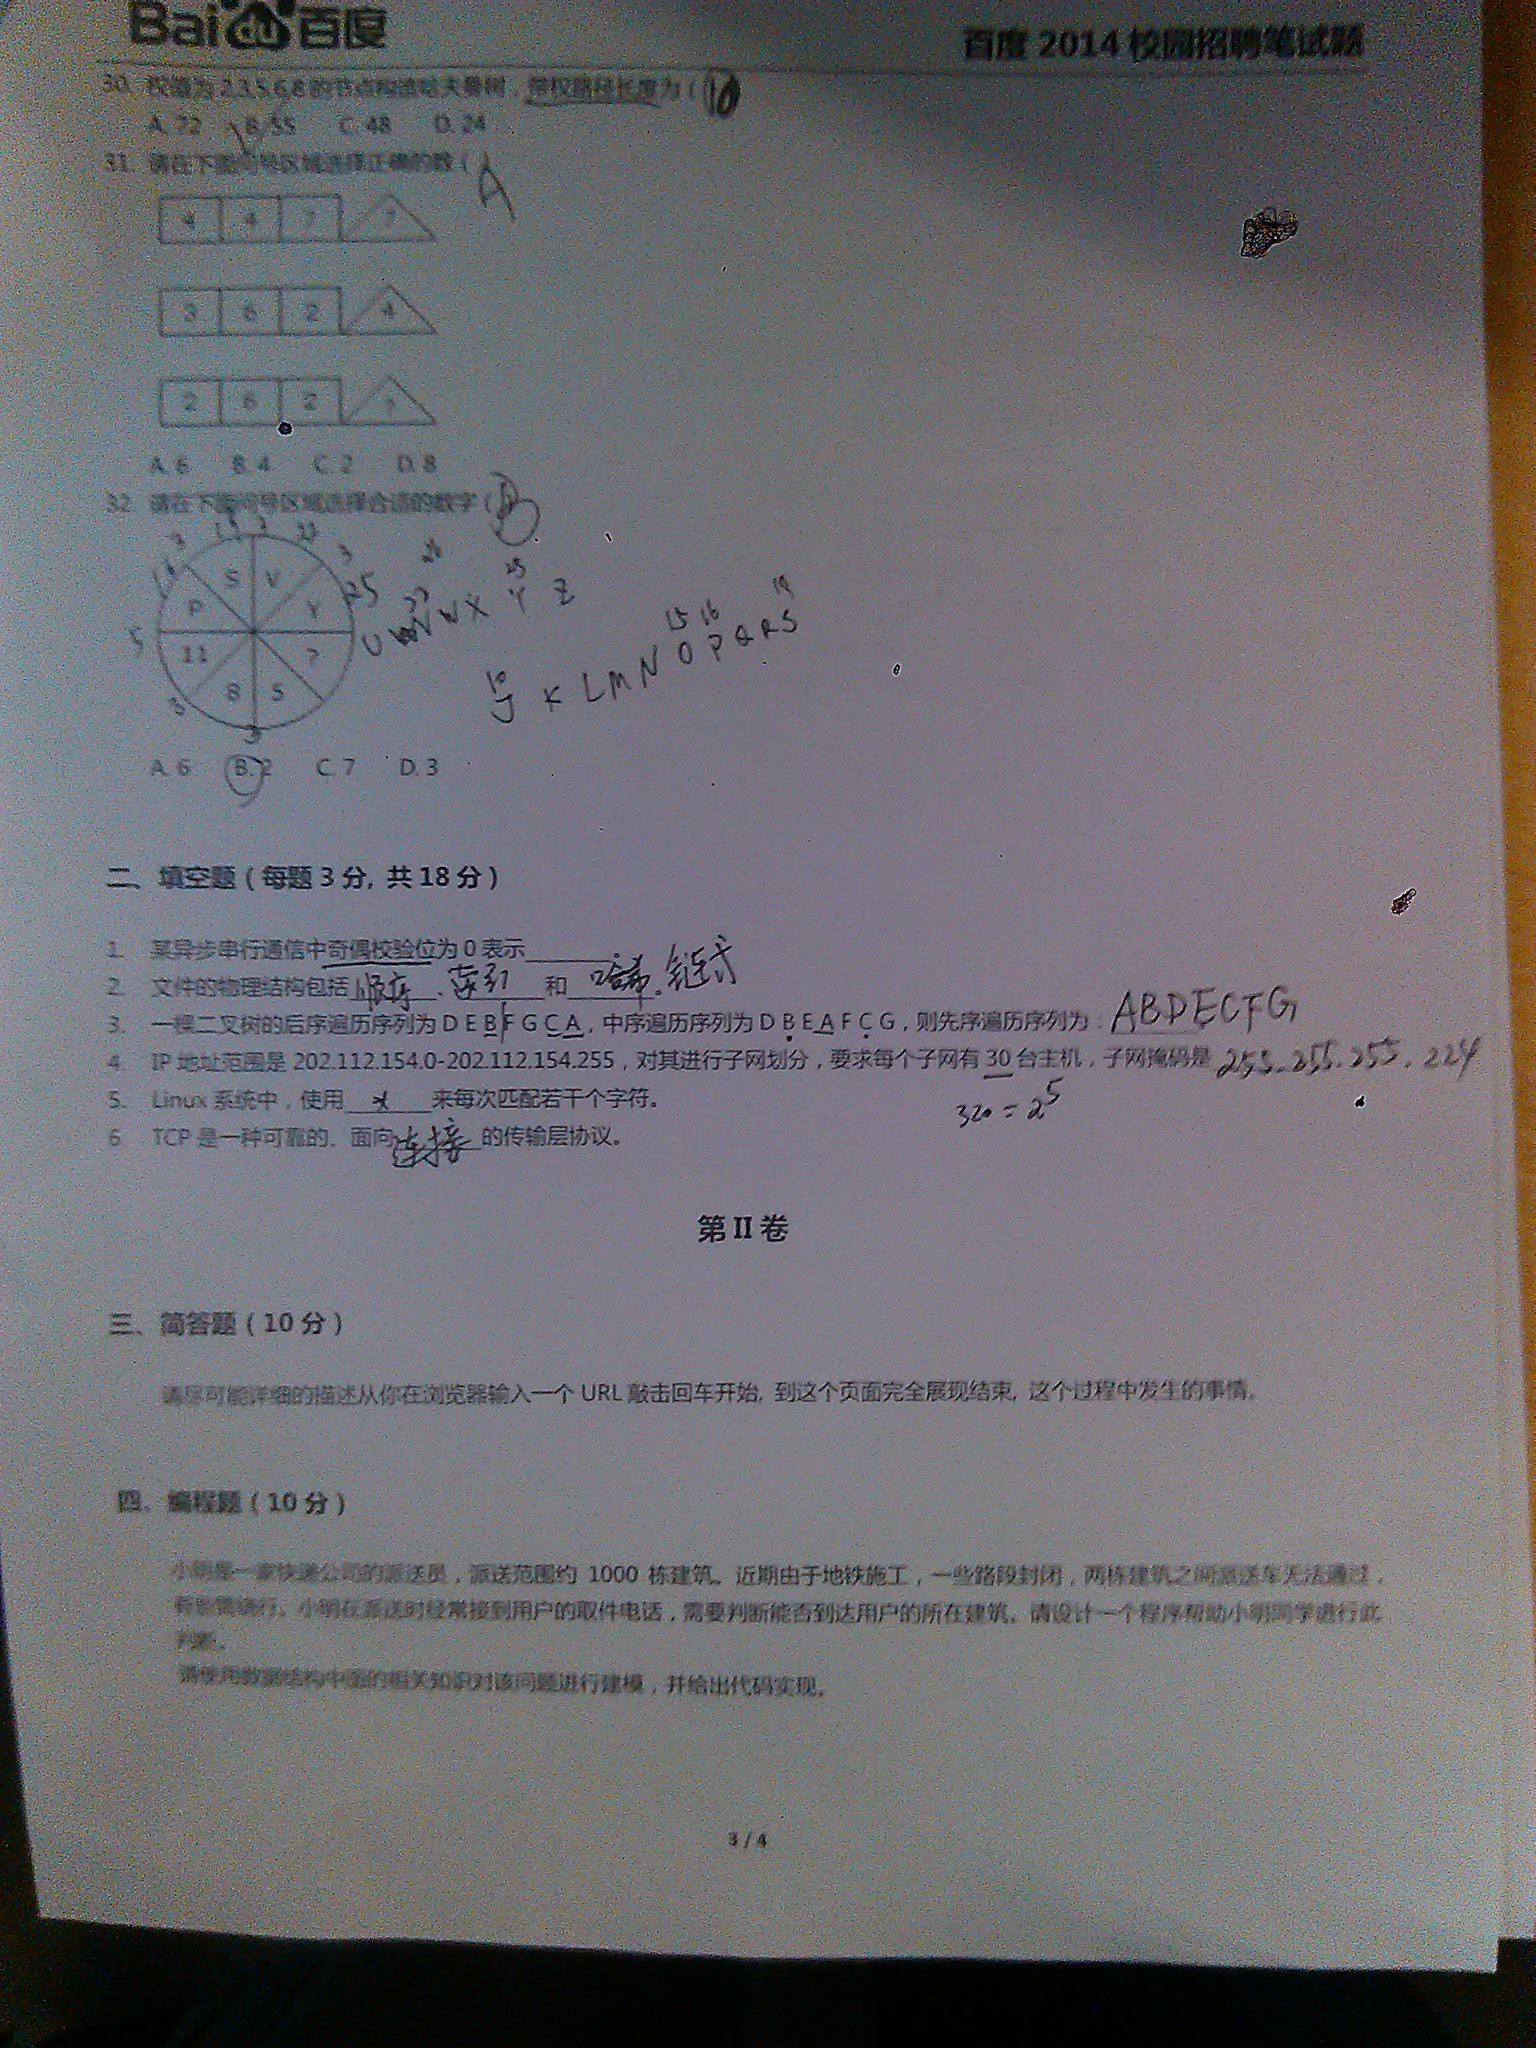 Bai du 百度
百度 2014 校园招聘笔试题
30. 权值为 2,3,5,6,8 的节点构造哈夫曼树，带权路径长度为（
A. 72 B. 55 C. 48 D. 24
31. 请在下面问号区域选择正确的数（A
4 4 7 7
3 6 2 4
2 6 2 ?
A. 6 B. 4 C. 2 D. 8
32. 请在下面问号区域选择合适的数字（B
S V
P Y
11 ?
8 5
25
U V W X Y Z
15 16 19
10
J K L M N O P Q R S
A. 6 B. 2 C. 7 D. 3
二、填空题（每题 3 分, 共 18 分）
1. 某异步串行通信中奇偶校验位为 0 表示________.
2. 文件的物理结构包括 顺序、索引 和 哈希。链式
3. 一棵二叉树的后序遍历序列为 D E B F G C A，中序遍历序列为 D B E A F C G，则先序遍历序列为：ABDECFG
4. IP 地址范围是 202.112.154.0-202.112.154.255，对其进行子网划分，要求每个子网有 30 台主机，子网掩码是 255.255.255.224
5. Linux 系统中，使用 * 来每次匹配若干个字符。
= 2^5
6. TCP 是一种可靠的、面向 连接 的传输层协议。
第 II 卷
三、简答题（10 分）
请尽可能详细的描述从你在浏览器输入一个 URL 敲击回车开始, 到这个页面完全展现结束, 这个过程中发生的事情。
四、编程题（10 分）
小明是一家快递公司的派送员，派送范围约 1000 栋建筑。近期由于地铁施工，一些路段封闭，两栋建筑之间派送车无法通过，
有些需绕行。小明在派送时经常接到用户的取件电话，需要判断能否到达用户的所在建筑。请设计一个程序帮助小明同学进行此
判断。
请使用数据结构中图的相关知识对该问题进行建模，并给出代码实现。
3 / 4